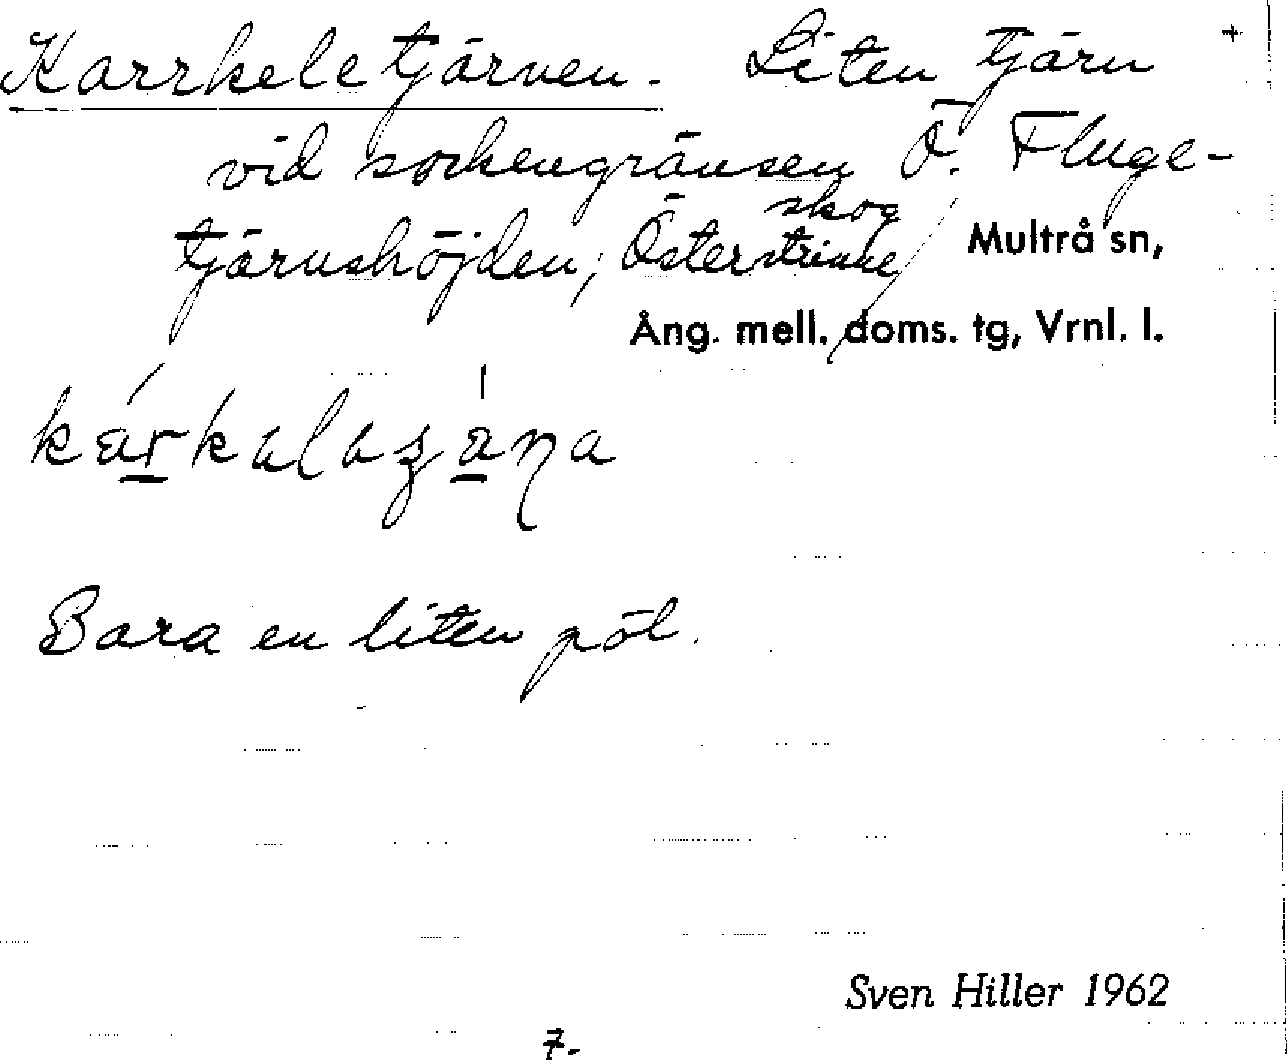 Karrkeletjärnen. Liten tjärn +
vid sockengränsen Ö. Fluge-
skog
tjärnshöjden, Österstrinne Multrå sn,
Ång. mell. doms. tg, Vrnl. l.
Bara en liten pöl.
Sven Hiller 1962
7.